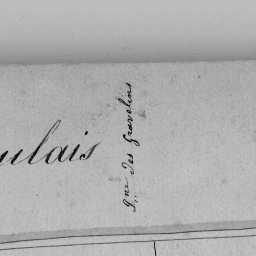 ulais
P.ne des Gravelins